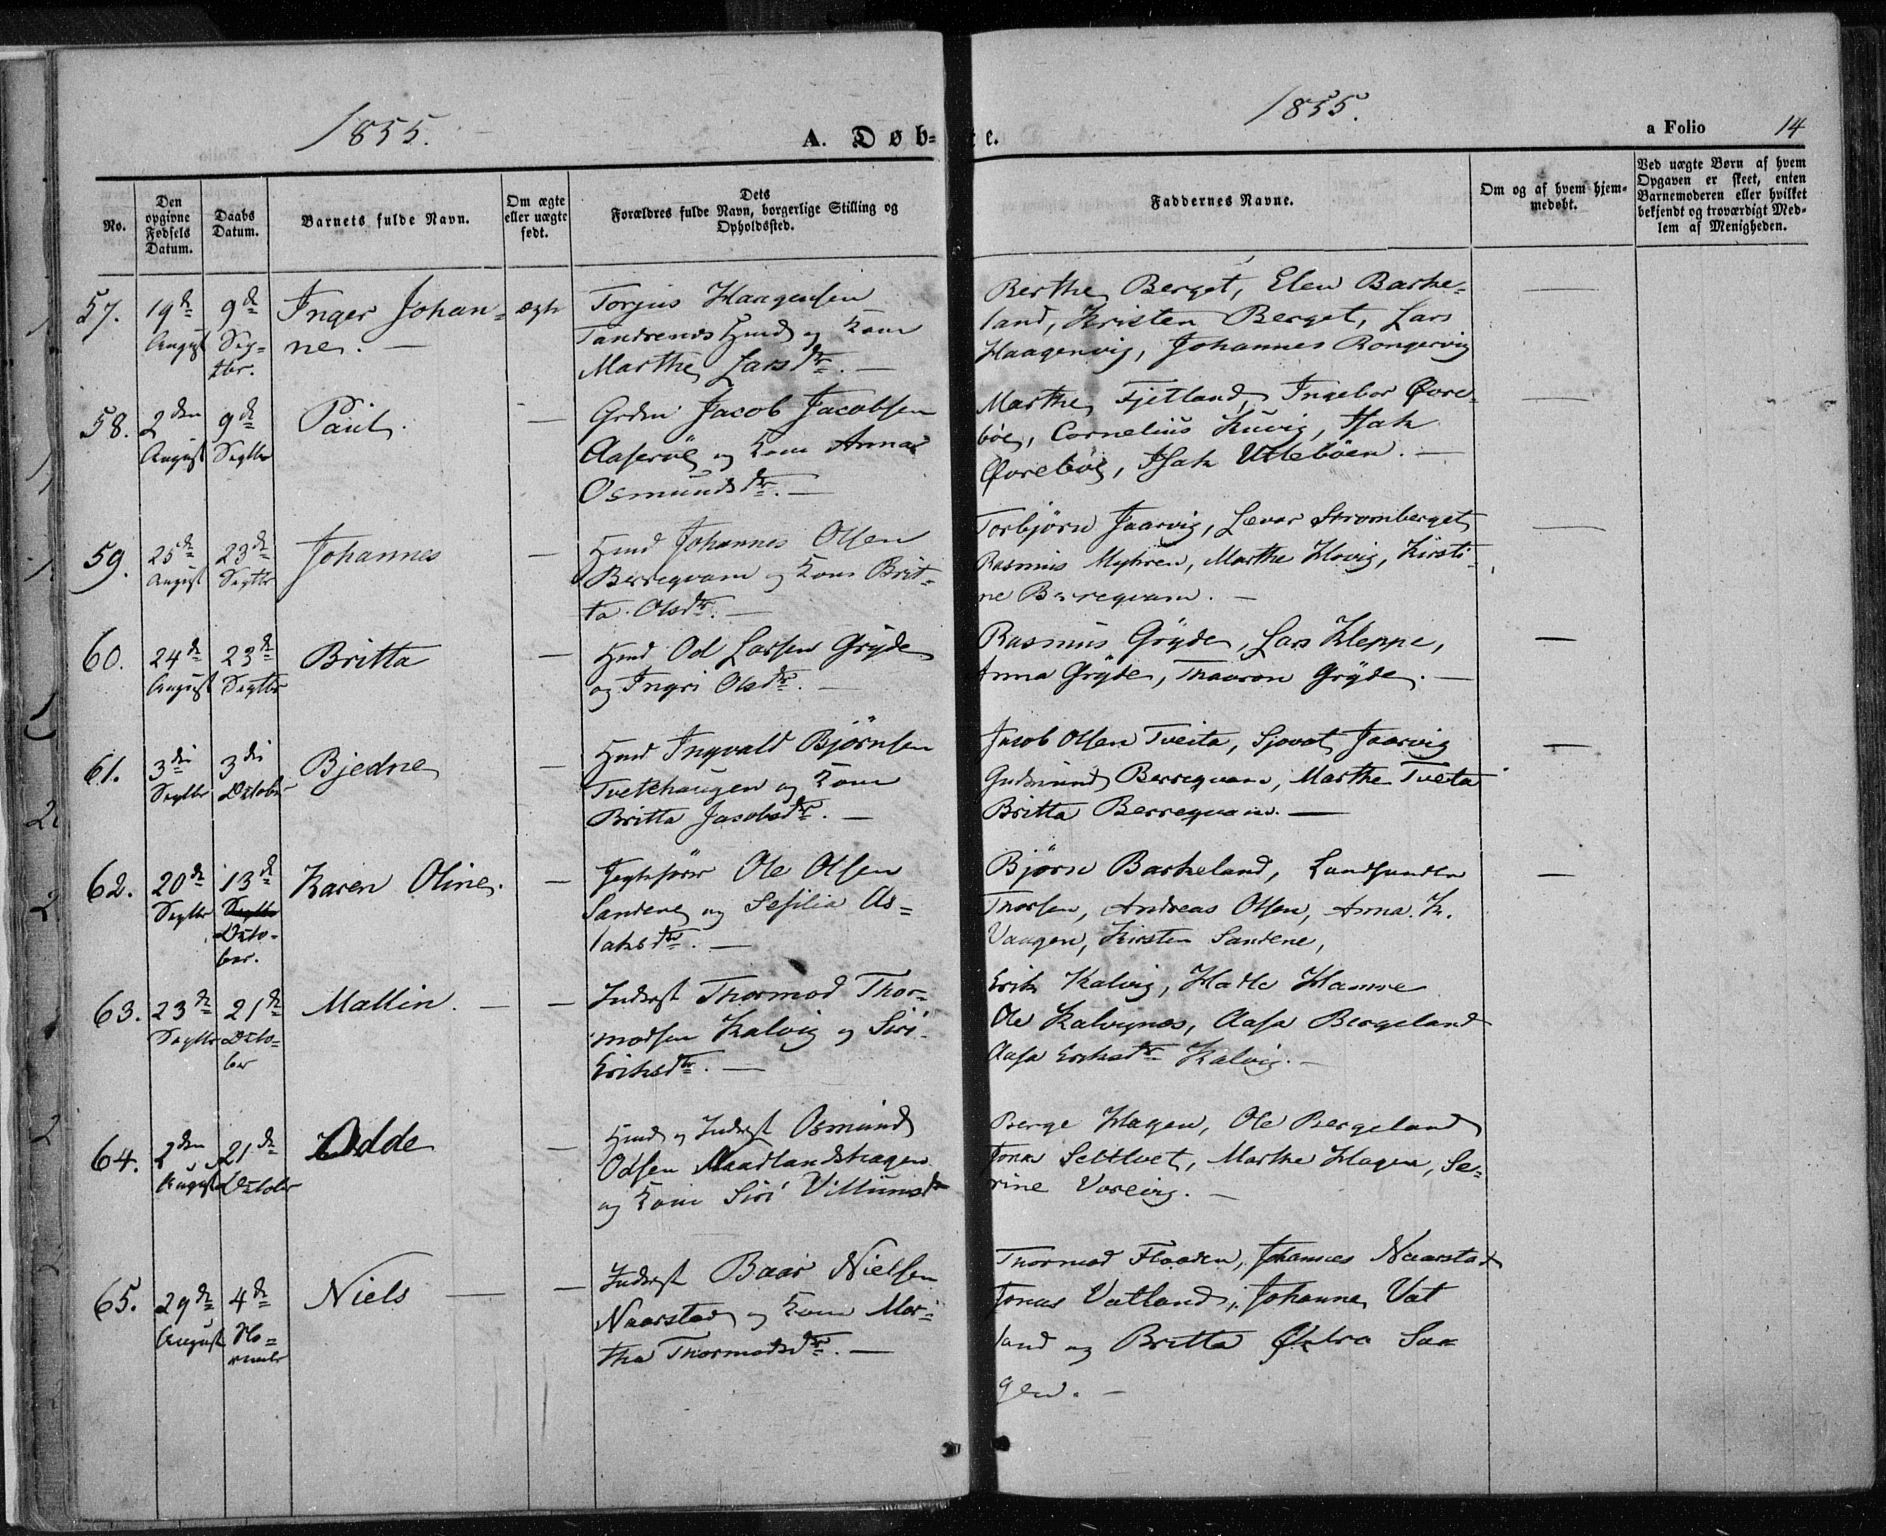 1855.
A. Døb-
te.
1855.
a Folio 14
No.
Den opgivne Fødsels Datum.
Daabs Datum.
Barnets fulde Navn.
Om ægte eller uægte født.
Dets Forældres fulde Navn, borgerlige Stilling og Opholdssted.
Faddernes Navne.
Om og af hvem hjemmedøbt.
Ved uægte Børn af hvem Opgaven er skeet, enten Barnemoderen eller hvilket bekjendt og troværdigt Medlem af Menigheden.
57. 19de August 9de Septbr. Inger Johan-
ne. — ægte
Torjus Haagensen
Tandrenes Hmd og Kone
Marthe Larsdtr. —
Berthe Berget, Elen Barke-
land, Kristen Berget, Lars
Haagenvig, Johannes Rongevig
—
58. 2den August 9de Septbr Paul. —
Grdm Jacob Jacobsen
Aaseröe og Kone Anna
Osmundsdtr. —
Marthe Fjetland, Ingebor Øvre-
böe, Cornelius Kuvig, Isak
Øvreböe, Isak Utleböen. —
—
59. 25de August 23de Septbr Johannes —
Hmd Johannes Olsen
Berreqvam og Kone Brit-
ta Olsdtr. —
Torbjörn Jaarvig, Levor Stromberget,
Rasmus Myhren, Marthe Hovig, Kirsti-
ne Berreqvam. —
—
60. 24de August 23de Septbr Britta —
Hmd Od Larsen Gryde
og Ingri Olsdtr. —
Rasmus Gryde, Lars Kleppe,
Anna Gryde, Thauron Gryde. —
—
61. 3die Septbr 3die October Bjedne —
Hmd Ingvald Björnsen
Tveithaugen og Kone
Britta Jacobsdtr. —
Jacob Olsen Tveita, Sjovat Jaarvig
Gudmund Berreqvam, Marthe Tveta
Britta Berreqvam. —
—
62. 20de Septbr 13de Septbr October. Karen Oline. —
Jegtefører Ole Olsen
Sandene og Sesilia As-
laksdtr. —
Björn Barkeland,
Thorsen, Andreas Olsen, Anna K.
Vaagen, Kirsten Sandene,
—
63. 23de Septbr 21de October Mallin. — —
Inderst Thormod Thor-
modsen Kalvig og Siri
Eriksdtr. —
Erik Kalvig, Hatle Hamre
Ole Kalvignes, Aasa Bergeland
Aasa Eriksdtr Kalvig. —
64. 2den August 21de October Odde —
Hmd og Inderst Osmund
Odsen Naadlandshagen
og Kone Siri Villumsdtr
Berge Hagen, Ole Bergeland
Jonas Seltvet, Marthe Hagen, Se-
rine Vorevig. —
65. 29de August 4de November Niels — —
Inderst Baar Nielsen
Naarstad og Kone Mar-
tha Thormodsdtr. —
Thormod Floden, Johannes Naarstad
Jonas Vatland, Johanne Vat
land og Britta Øvbro Saa-
gen. —